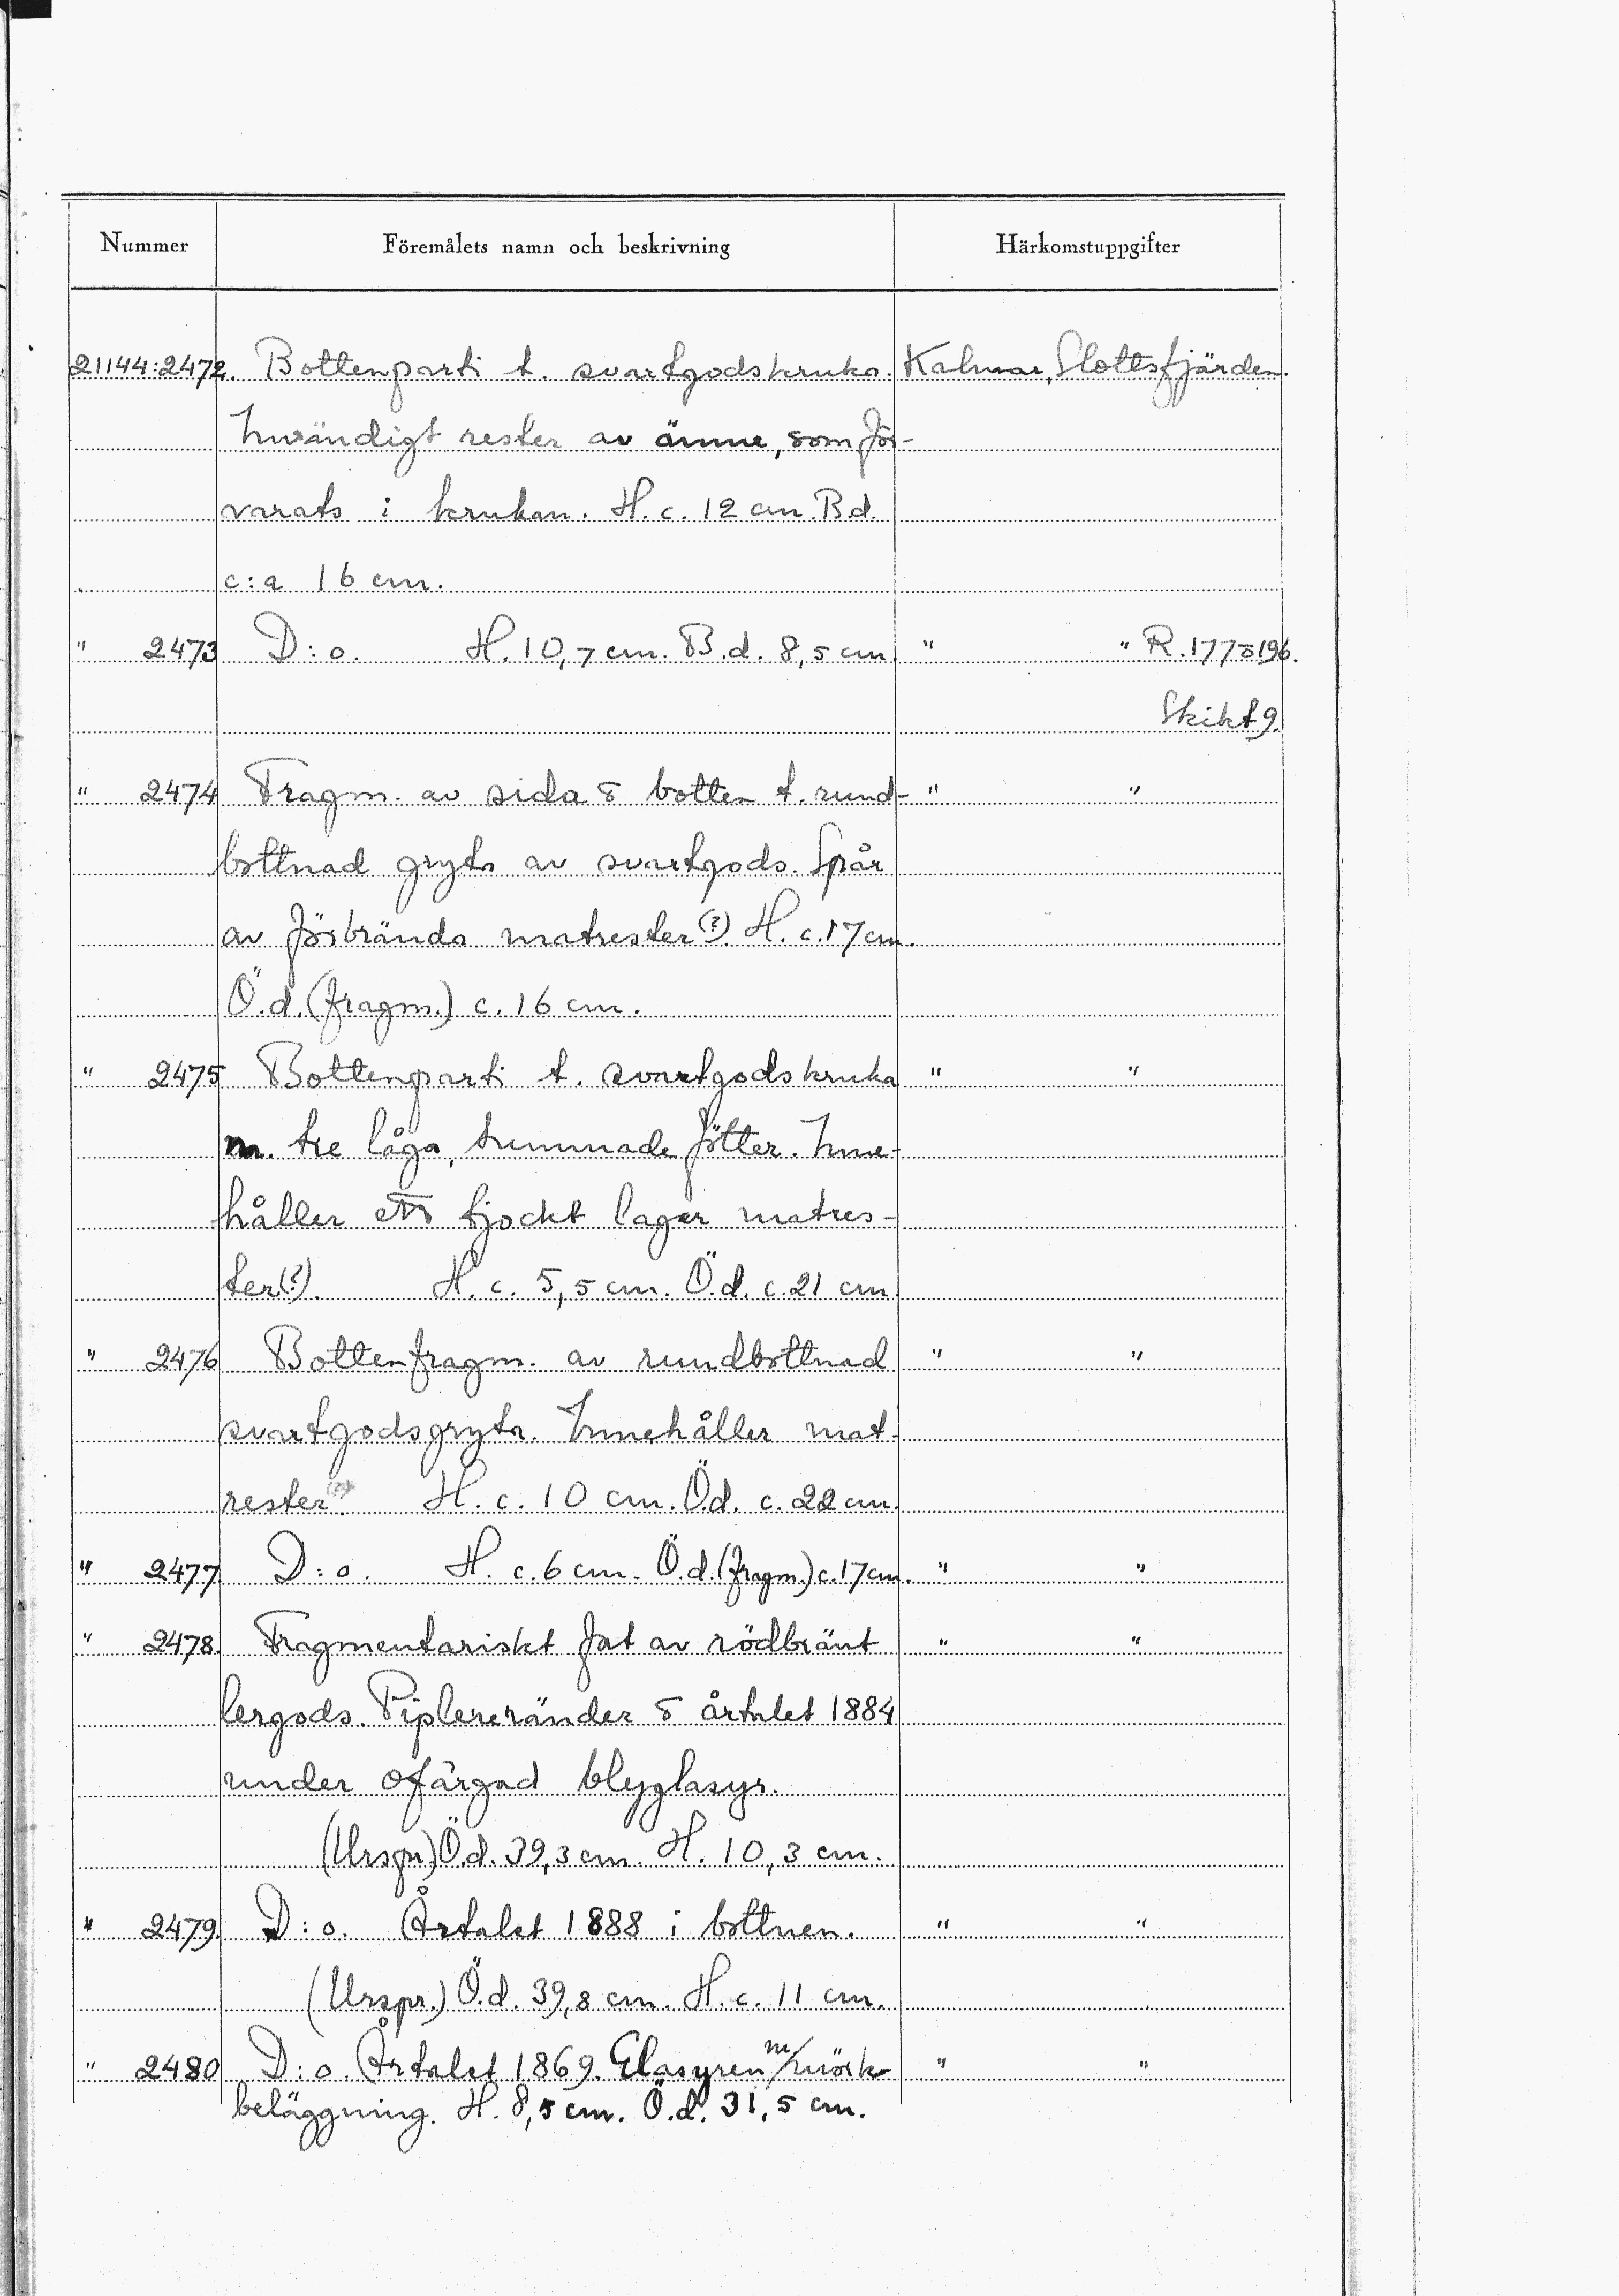 Nummer Föremålets namn och beskrivning Härkomstuppgifter
21144:2472. Bottenparti t. svartgodskruka. Kalmar, Slottsfjärden.
Invändigt rester av ämne, som för-
varats i krukan. H. c. 12 cm. B.d.
c:a 16 cm.
" 2473 D:o. H. 10,7 cm. B.d. 8,5 cm. " " R. 177 & 196.
Skikt 9.
" 2474 Fragm. av sida & botten t. rund- " "
bottnad gryta av svartgods. Spår
av förbrända matrester (?). H. c. 17 cm.
Ö.d. (fragm.) c. 16 cm.
" 2475 Bottenparti t. svartgodskruka " "
m. tre låga, tummade fötter. Inne-
håller ett tjockt lager matres-
ter (?). H. c. 5,5 cm. Ö.d. c. 21 cm.
" 2476 Bottenfragm. av rundbottnad " "
svartgodsgryta. Innehåller mat-
rester (?). H. c. 10 cm. Ö.d. c. 22 cm.
" 2477. D:o. H. c. 6 cm. Ö.d. (fragm.) c. 17 cm. " "
" 2478. Fragmentariskt fat av rödbränt " "
lergods. Piplereränder & årtalet 1884
under ofärgad blyglasyr.
(Urspr.) Ö.d. 39,3 cm. H. 10,3 cm.
" 2479. D:o. Årtalet 1888 i bottnen. " "
(Urspr.) Ö.d. 39,8 cm. H. c. 11 cm.
" 2480 D:o. Årtalet 1869. Glasyren m/mörk " "
beläggning. H. 8,5 cm. Ö.d. 31,5 cm.